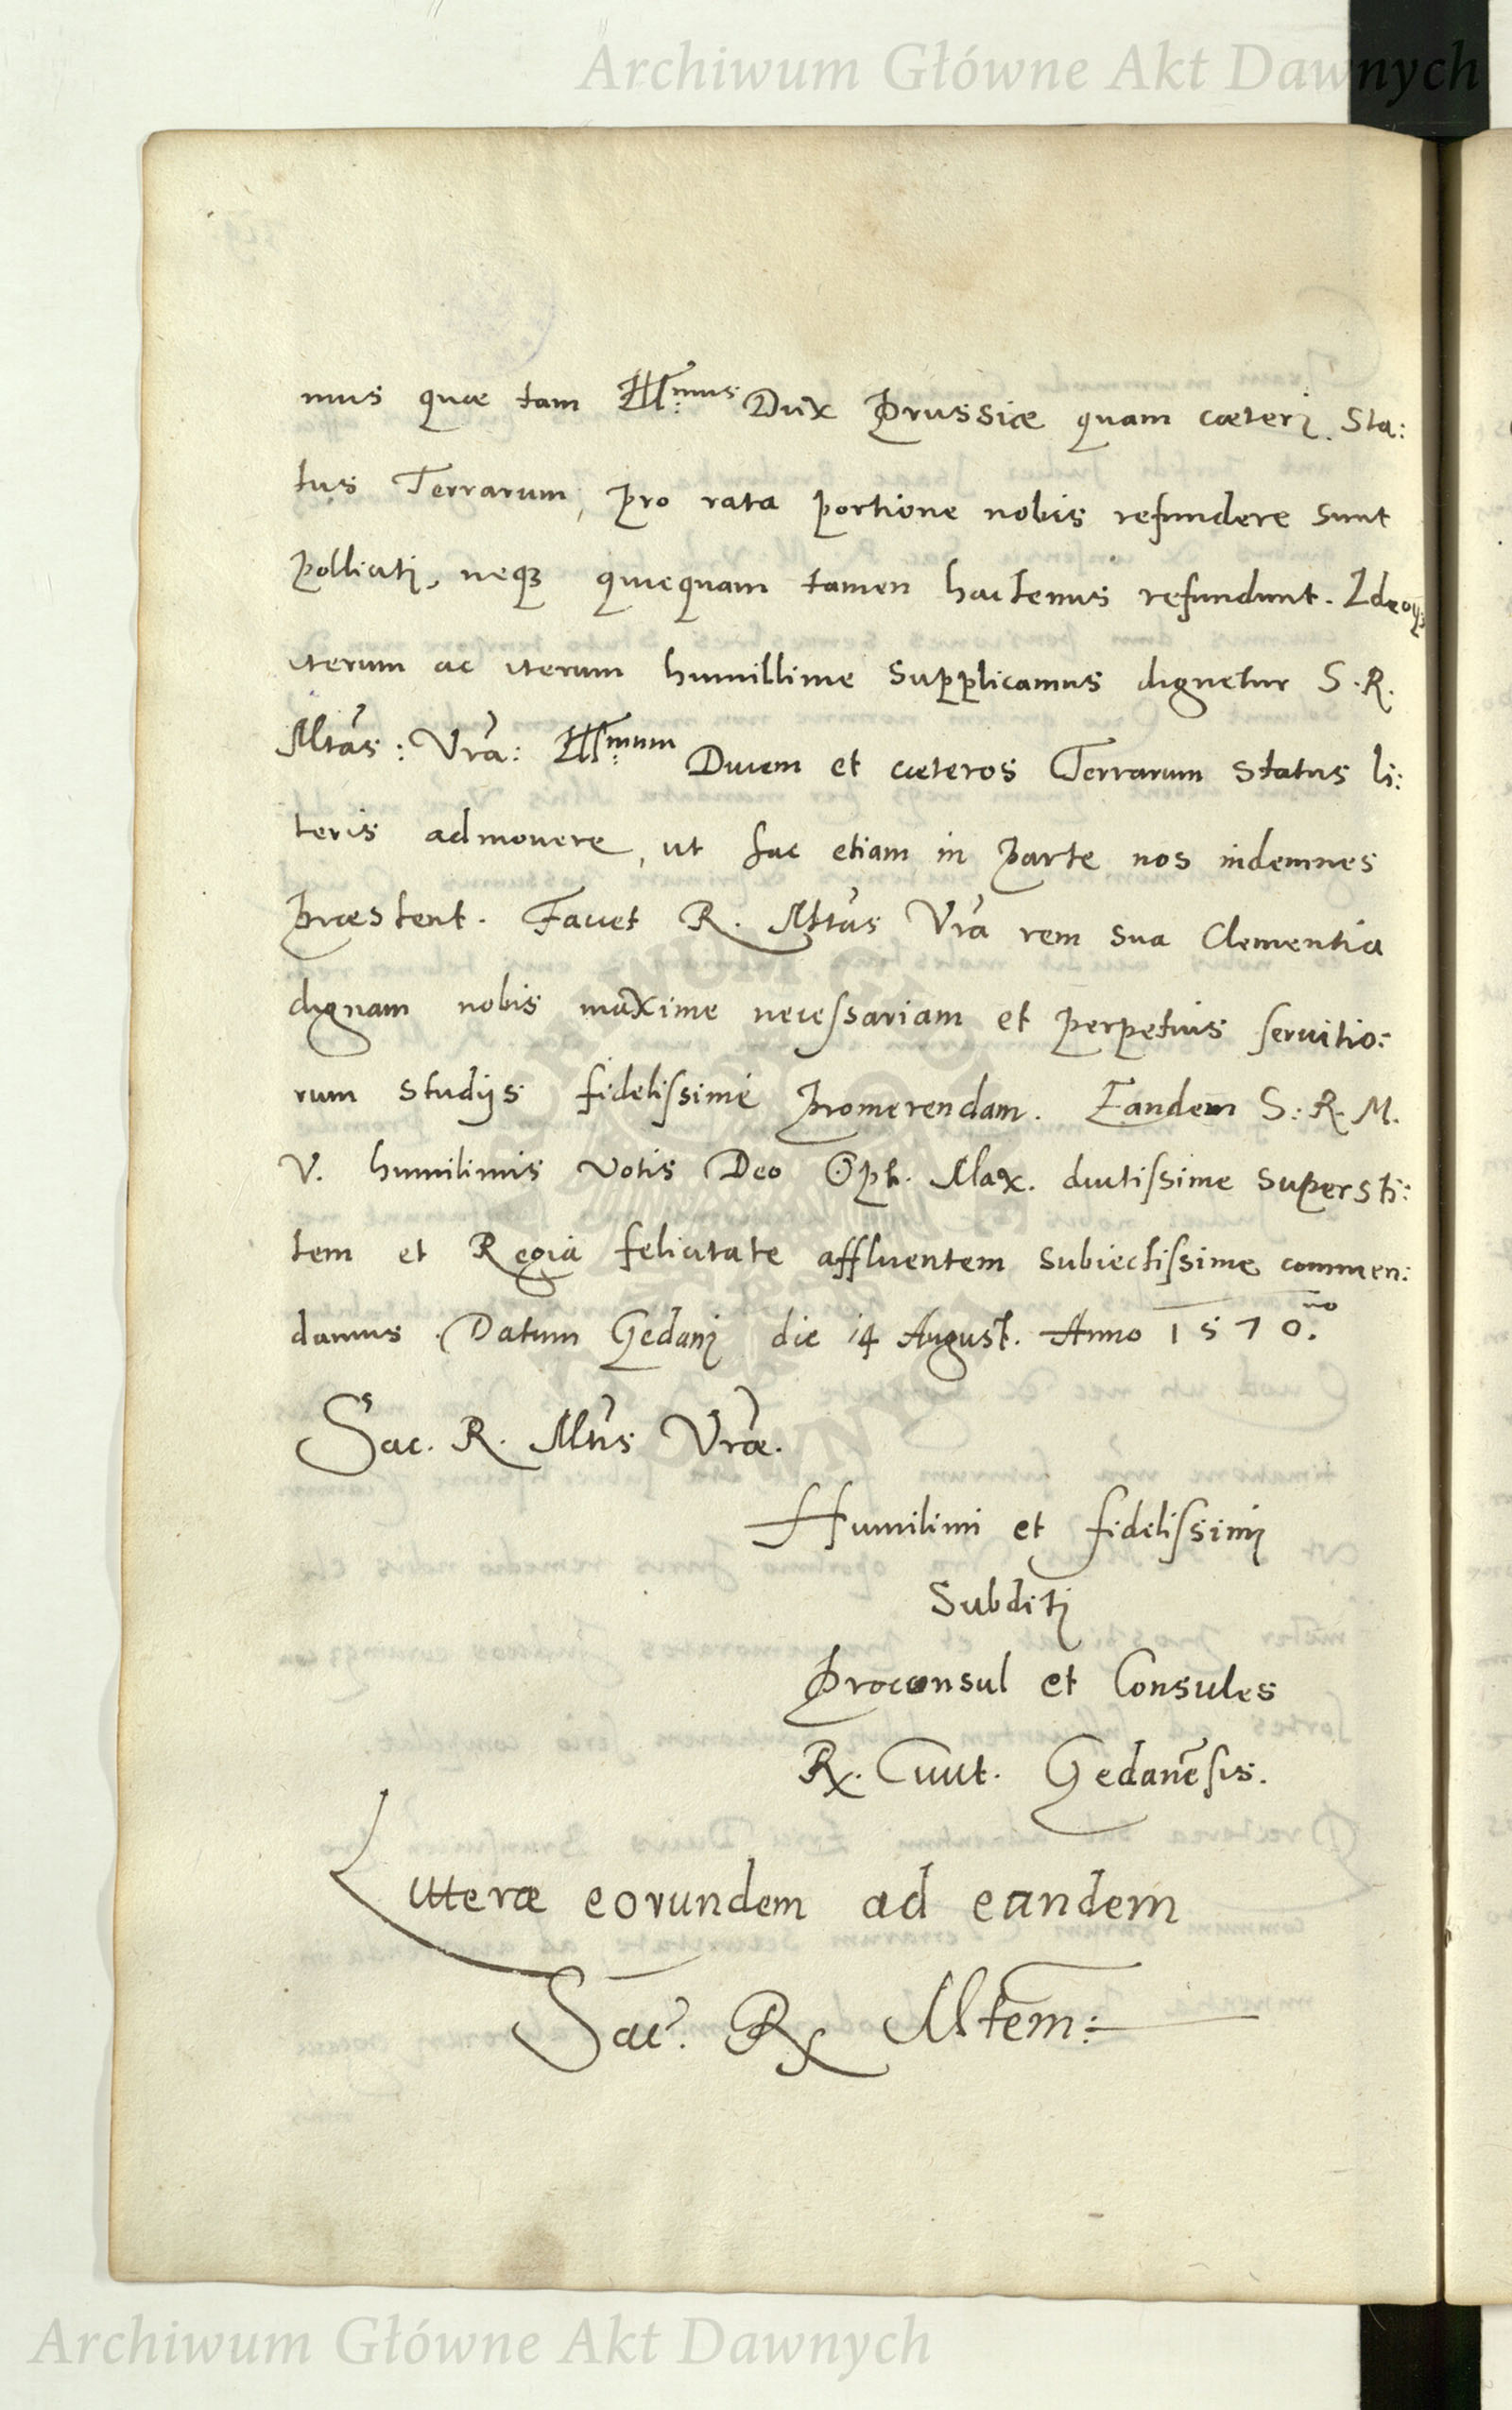 Archiwum Główne Akt Dawnych
mus quæ tam Ill:mus Dux Prussiæ quam cæterj Sta:
tus Terrarum, pro rata portione nobis refundere sunt
pollicitj, neq3 quicquam tamen hactenus refundunt. Ideoq3
iterum ac iterum humillime supplicamus dignetur S. R.
Mtas: Vra: Ill:mum Ducem et cæteros Terrarum Status li:
teris admonere, ut hac etiam in parte nos indemnes
præstent. Faciet R. Mtas Vra rem sua Clementia
dignam nobis maxime necessariam et perpetuis servitio:
rum studijs fidelissime promerendam. Eandem S: R. M.
V. humilimis votis Deo Opt. Max. diutissime supersti:
tem et Regia felicitate affluentem subiectissime commen:
damus. Datum Gedanj die 14 August. Anno 1570.no
Sac. R. Mtis Vræ.
Humilimi et fidelissimj
Subditj
Proconsul et Consules
Rx. Civit. Gedanēsis.
Litteræ eorundem ad eandem
Sac. Rx Mtem:
ARCHIWUM GŁÓWNE AKT DAWNYCH
Archiwum Główne Akt Dawnych